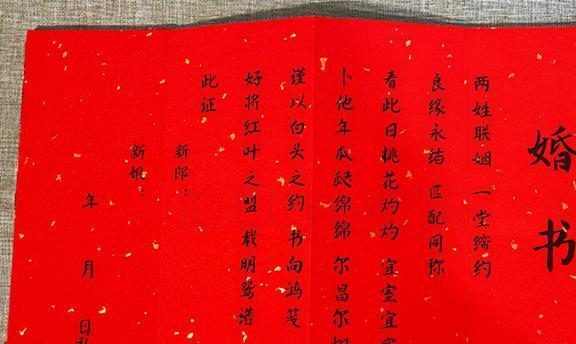 婚书
两姓联姻 一堂缔约
良缘永结 匹配同称
看此日桃花灼灼 宜室宜家
卜他年瓜瓞绵绵 尔昌尔
谨以白头之约 书向鸿笺
好将红叶之盟 载明鸳谱
此证
新郎：
新娘：
年 月 日